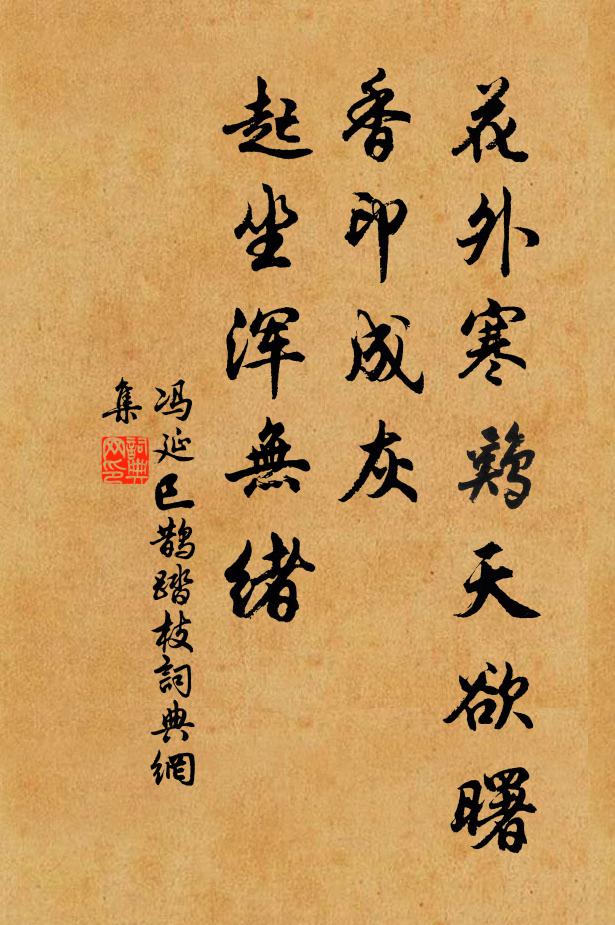 花外寒鷄天欲曙
香印成灰
起坐渾無緒
馮延巳鵲踏枝詞典網
集
詞典
网印